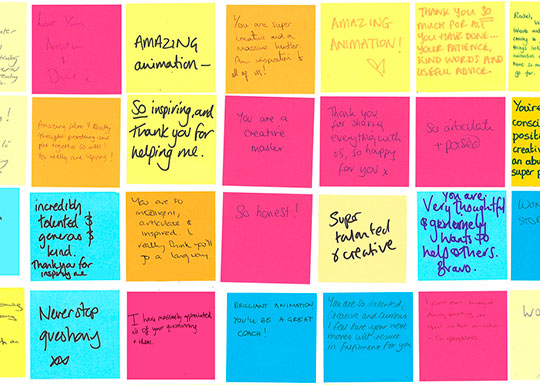 Love
AMAZING
animation –
You are super
creative and a
massive hustler
An inspiration to
all of us!
AMAZING
ANIMATION!
THANK YOU SO
much FOR ALL
YOU HAVE DONE...
YOUR PATIENCE,
KIND WORDS AND
USEFUL ADVICE.
Rachel,
go for.
Amazing film & Really
thought provoking and
put together so well!
You really are inspiring!
SO inspiring, and
thank you for
helping me.
You are a
creative
master
Thank you
for sharing
everything with
us, so happy
for you x
So articulate
+ poised
You're
consci
positi
creati
an abu
super p
incredibly
talented &
generous &
kind.
Thank you for
inspiring me
You are so
intelligent,
articulate &
inspired. I
really think you'll
go a long way
So honest!
Super
talented
& creative
You are
very thoughtful
& genuinely
wants to
help others.
Bravo.
WON
STOR
Never stop
questioning
xxx
I have massively appreciated
all of your questioning
+ ideas.
BRILLIANT ANIMATION
YOU'LL BE A GREAT
COACH!
You are so talented,
creative and curious
I feel like your next
moves will result
in fulfilment for you
WO